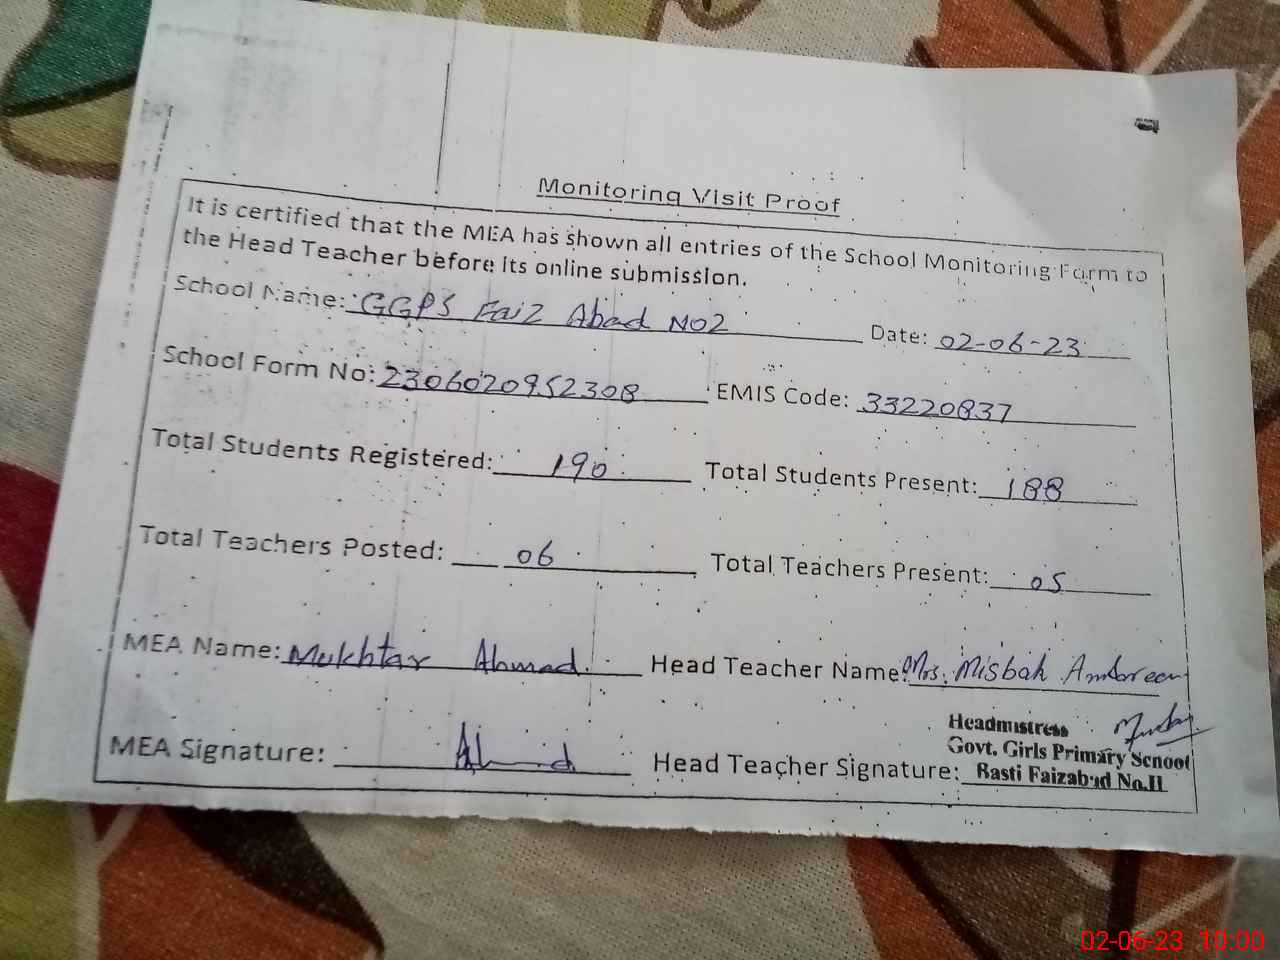 Monitoring Visit Proof
It is certified that the MEA has shown all entries of the School Monitoring Form to
the Head Teacher before its online submission.
School Name: GGPS Faiz Abad NO2 Date: 02-06-23
School Form No: 2306020952308 EMIS Code: 33220837
Total Students Registered: 190 Total Students Present: 188
Total Teachers Posted: 06 Total Teachers Present: 05
MEA Name: Mukhtar Ahmad. Head Teacher Name: Mrs. Misbah Ambreen
MEA Signature: Ahmad Head Teacher Signature:
Headmistress
Govt. Girls Primary School
Basti Faizabad No.II
02-06-23 10:00